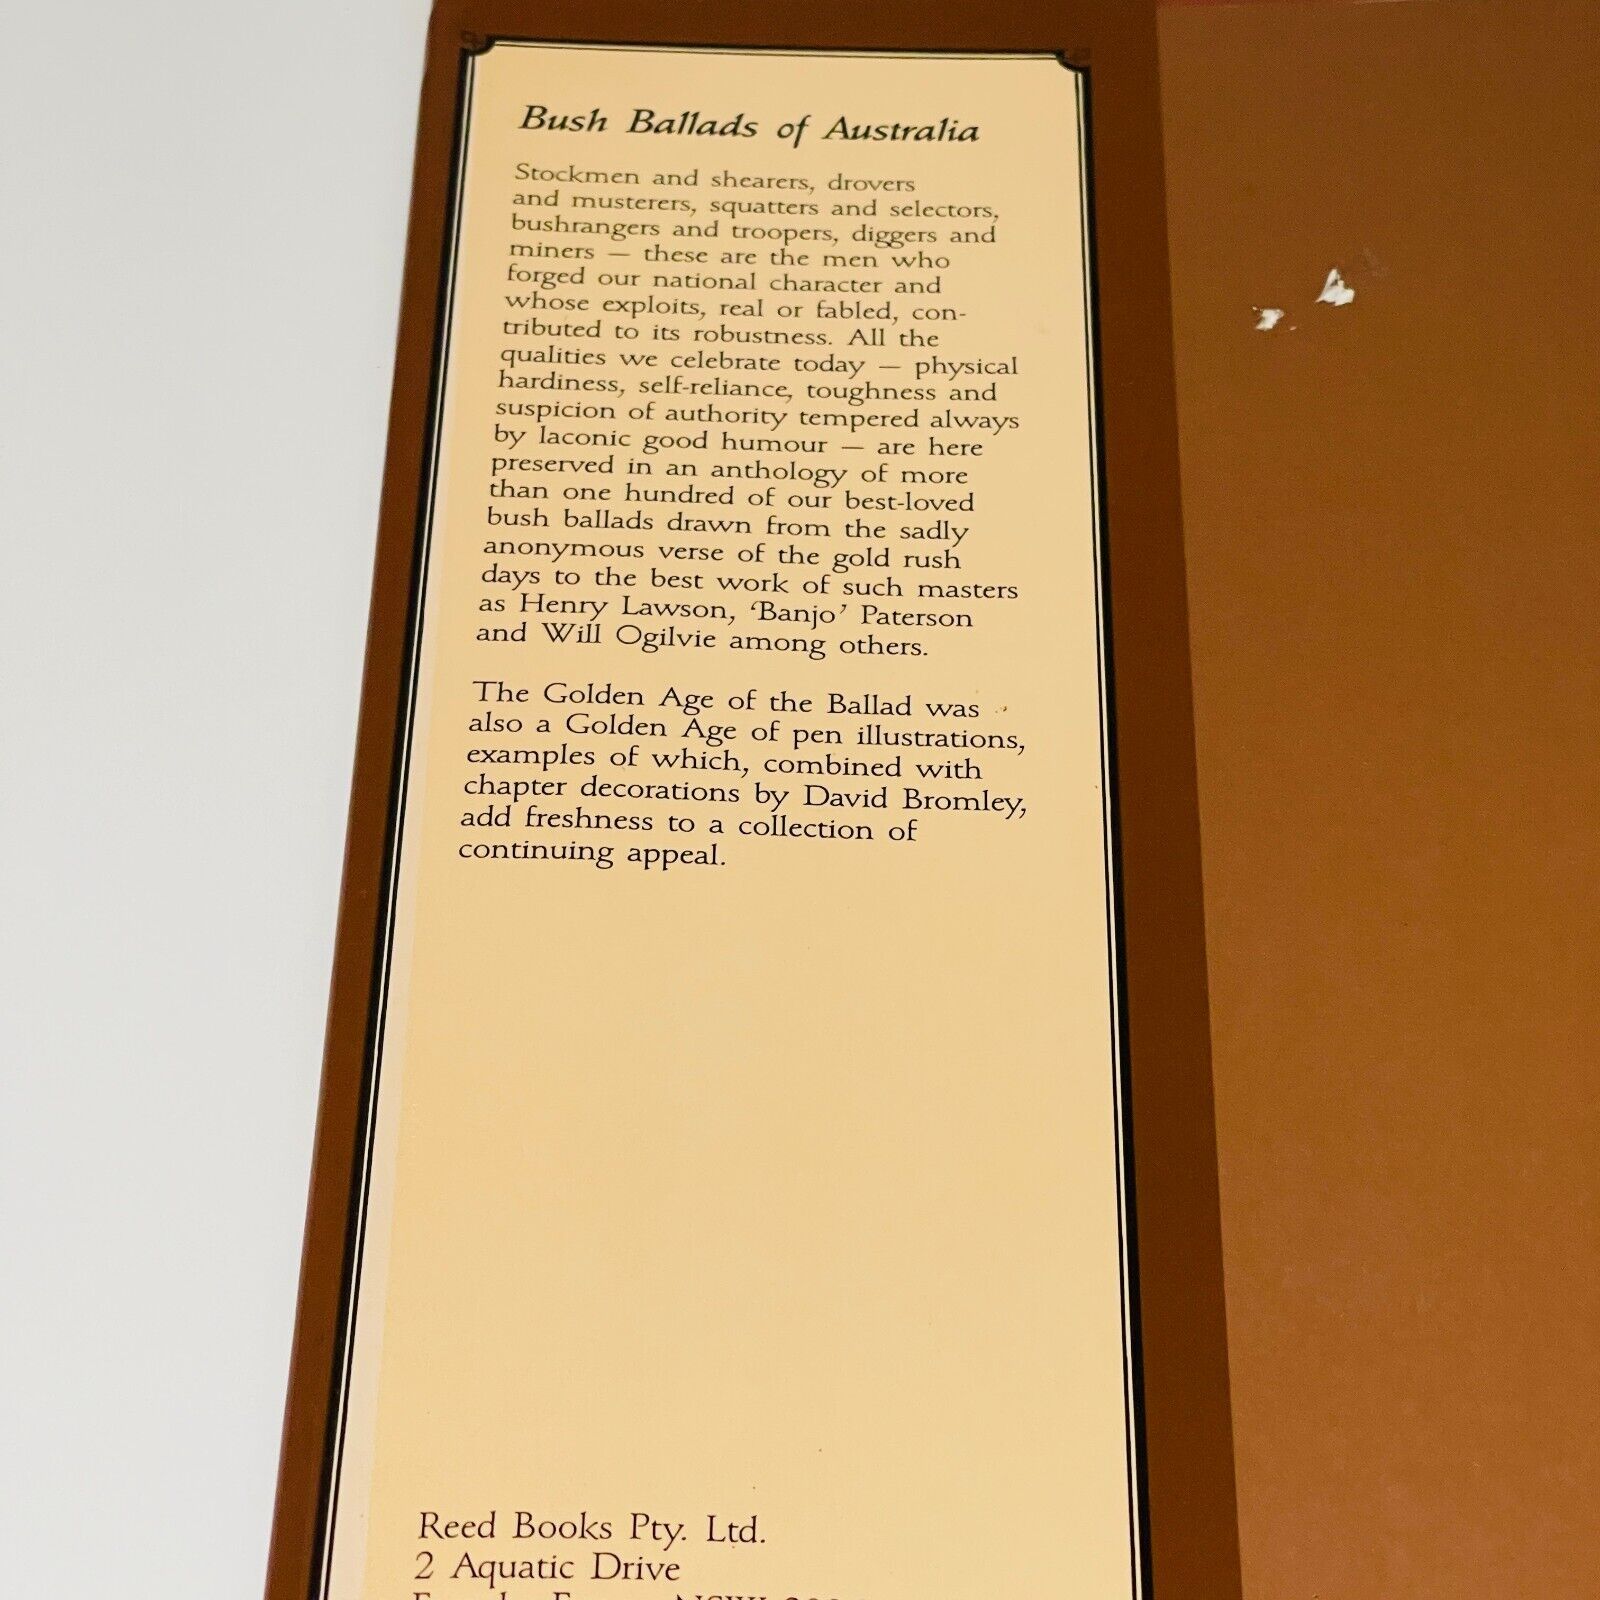 Bush Ballads of Australia
Stockmen and shearers, drovers
and musterers, squatters and selectors,
bushrangers and troopers, diggers and
miners — these are the men who
forged our national character and
whose exploits, real or fabled, con-
tributed to its robustness. All the
qualities we celebrate today — physical
hardiness, self-reliance, toughness and
suspicion of authority tempered always
by laconic good humour — are here
preserved in an anthology of more
than one hundred of our best-loved
bush ballads drawn from the sadly
anonymous verse of the gold rush
days to the best work of such masters
as Henry Lawson, ‘Banjo’ Paterson
and Will Ogilvie among others.
The Golden Age of the Ballad was
also a Golden Age of pen illustrations,
examples of which, combined with
chapter decorations by David Bromley,
add freshness to a collection of
continuing appeal.
Reed Books Pty. Ltd.
2 Aquatic Drive
NSW